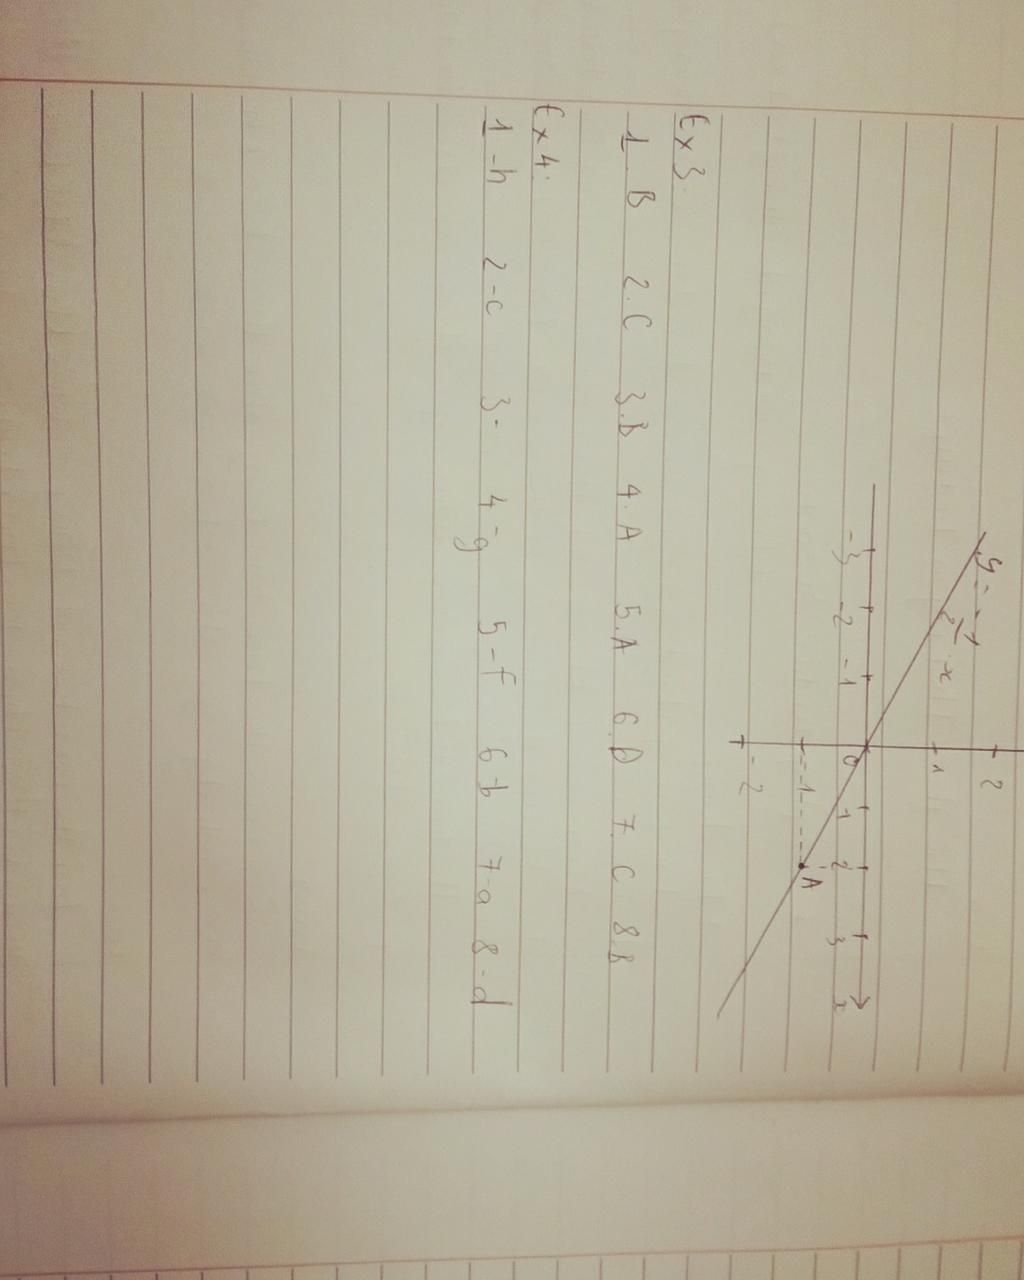 2
1
y = -1/2 x
-3 -2 -1 0 1 2 3 x
-1 A
-2
Ex 3.
1 B 2.C 3.B 4.A 5.A 6.D 7.C 8.B
Ex 4:
1-h 2-c 3- 4-g 5-f 6-b 7-a 8-d